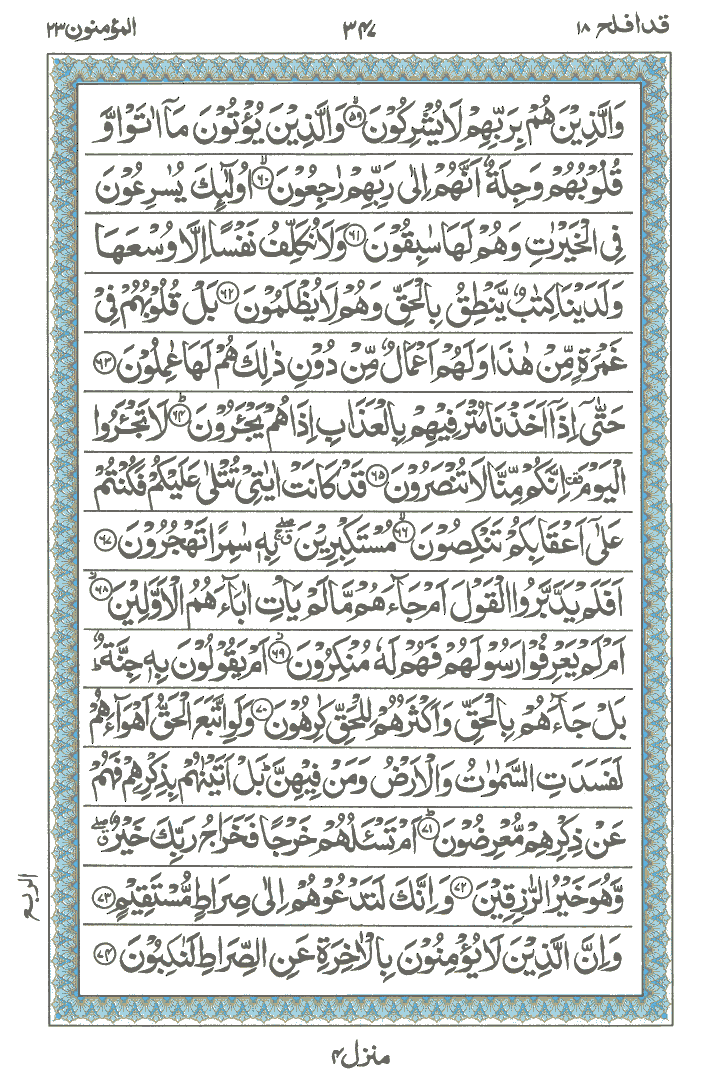 قد افلح ۱۸
۳۴۷
المؤمنون ۲۳
وَالَّذِيْنَ هُمْ بِرَبِّهِمْ لَا يُشْرِكُوْنَ ۙ‏﴿۵۹﴾ وَالَّذِيْنَ يُؤْتُوْنَ مَاۤ اٰتَوْا وَّ
قُلُوْبُهُمْ وَجِلَةٌ اَنَّهُمْ اِلٰى رَبِّهِمْ رٰجِعُوْنَ ۙ‏﴿۶۰﴾ اُولٰٓئِكَ يُسٰرِعُوْنَ
فِى الْخَيْرٰتِ وَهُمْ لَهَا سٰبِقُوْنَ ﴿۶۱﴾ وَلَا نُكَلِّفُ نَفْسًا اِلَّا وُسْعَهَا
وَلَدَيْنَا كِتٰبٌ يَّنْطِقُ بِالْحَقِّ وَهُمْ لَا يُظْلَمُوْنَ ﴿۶۲﴾ بَلْ قُلُوْبُهُمْ فِىْ
غَمْرَةٍ مِّنْ هٰذَا وَلَهُمْ اَعْمَالٌ مِّنْ دُوْنِ ذٰلِكَ هُمْ لَهَا عٰمِلُوْنَ ﴿۶۳﴾
حَتّٰٓى اِذَاۤ اَخَذْنَا مُتْرَفِيْهِمْ بِالْعَذَابِ اِذَا هُمْ يَجْئَرُوْنَ ؕ‏﴿۶۴﴾ لَا تَجْئَرُوا
الْيَوْمَ اِنَّكُمْ مِّنَّا لَا تُنْصَرُوْنَ ﴿۶۵﴾ قَدْ كَانَتْ اٰيٰتِىْ تُتْلٰى عَلَيْكُمْ فَكُنْتُمْ
عَلٰٓى اَعْقَابِكُمْ تَنْكِصُوْنَ ۙ‏﴿۶۶﴾ مُسْتَكْبِرِيْنَ ۖ بِهٖ سٰمِرًا تَهْجُرُوْنَ ﴿۶۷﴾
اَفَلَمْ يَدَّبَّرُوا الْقَوْلَ اَمْ جَآءَهُمْ مَّا لَمْ يَاْتِ اٰبَآءَهُمُ الْاَوَّلِيْنَ ﴿۶۸﴾
اَمْ لَمْ يَعْرِفُوْا رَسُوْلَهُمْ فَهُمْ لَهٗ مُنْكِرُوْنَ ﴿۶۹﴾ اَمْ يَقُوْلُوْنَ بِهٖ جِنَّةٌ ؕ
بَلْ جَآءَهُمْ بِالْحَقِّ وَاَكْثَرُهُمْ لِلْحَقِّ كٰرِهُوْنَ ﴿۷۰﴾ وَلَوِ اتَّبَعَ الْحَقُّ اَهْوَآءَهُمْ
لَفَسَدَتِ السَّمٰوٰتُ وَالْاَرْضُ وَمَنْ فِيْهِنَّ ؕ بَلْ اَتَيْنٰهُمْ بِذِكْرِهِمْ فَهُمْ
عَنْ ذِكْرِهِمْ مُّعْرِضُوْنَ ؕ‏﴿۷۱﴾ اَمْ تَسْئَلُهُمْ خَرْجًا فَخَرَاجُ رَبِّكَ خَيْرٌ ۖ
وَّهُوَ خَيْرُ الرّٰزِقِيْنَ ﴿۷۲﴾ وَاِنَّكَ لَتَدْعُوْهُمْ اِلٰى صِرَاطٍ مُّسْتَقِيْمٍ ﴿۷۳﴾
وَاِنَّ الَّذِيْنَ لَا يُؤْمِنُوْنَ بِالْاٰخِرَةِ عَنِ الصِّرَاطِ لَنٰكِبُوْنَ ﴿۷۴﴾
الربع
منزل ۴